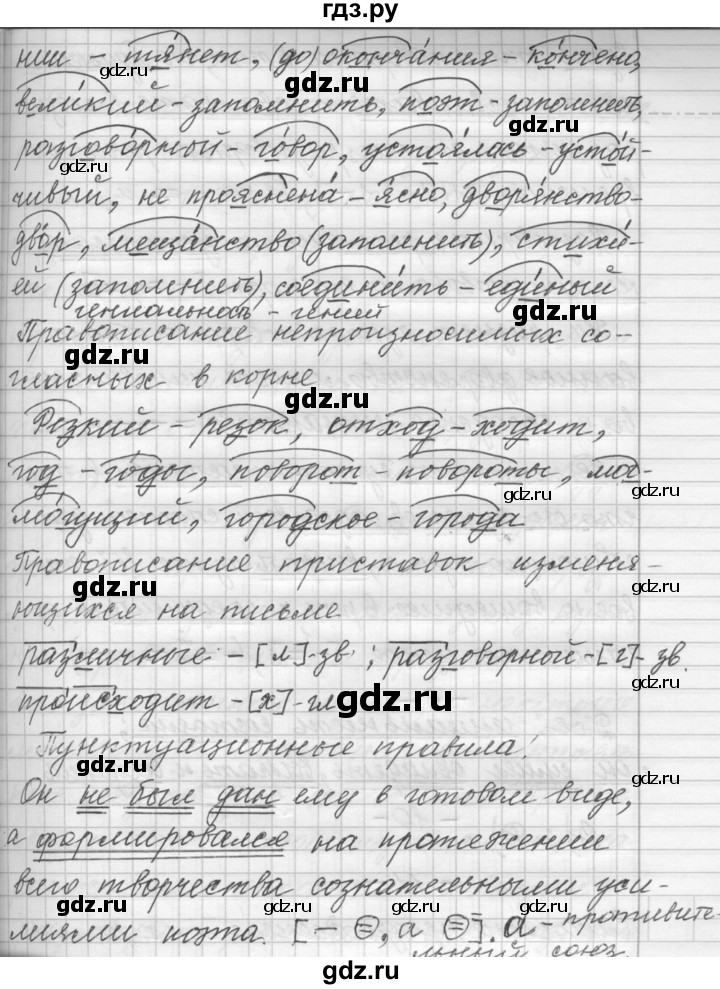 гдз.ру
нии - тя́нет, (до) оконча́ния - ко́нчено,
вели́кий - запомнить, поэт - запомнить,
разгово́рный - го́вор, устоя́лась - усто́й-
чивый, не прояснена́ - я́сно, дворя́нство-
дво́р, меща́нство (запомнить), стихи́-
ей (запомнить), соедини́ть - еди́ный
гениальность - гений
Правописание непроизносимых со-
гласных в корне
Резкий - резок, отход - ходит,
год - го́ды, поворот - повороты, мог-
мо́гущий, городское - города
Правописание приставок изменя-
ющихся на письме
различные - [л]-зв.; разговорной - [г]- зв.
происходит - [х]-гл
Пунктуационные правила:
Он не был дан ему в готовом виде,
а формировался на протяжении
всего творчества сознательными уси-
лиями поэта. [- =, а =]. а - противите-
льный союз.
gdz.ru